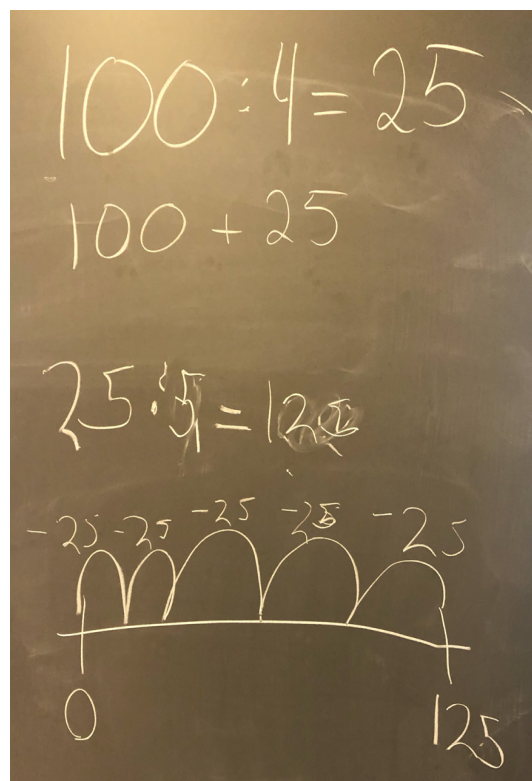 100 : 4 = 25
100 + 25
25 : 5 = 125
-25 -25 -25 -25 -25
0 125